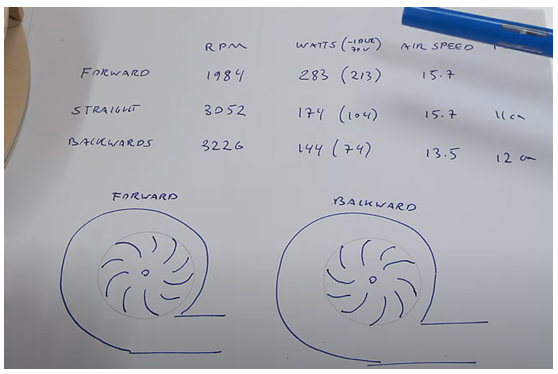 RPM WATTS (-IDLE 70W) AIR SPEED
FORWARD 1984 283 (213) 15.7
STRAIGHT 3052 174 (104) 15.7 11 cm
BACKWARDS 3226 144 (74) 13.5 12 cm
FORWARD BACKWARD